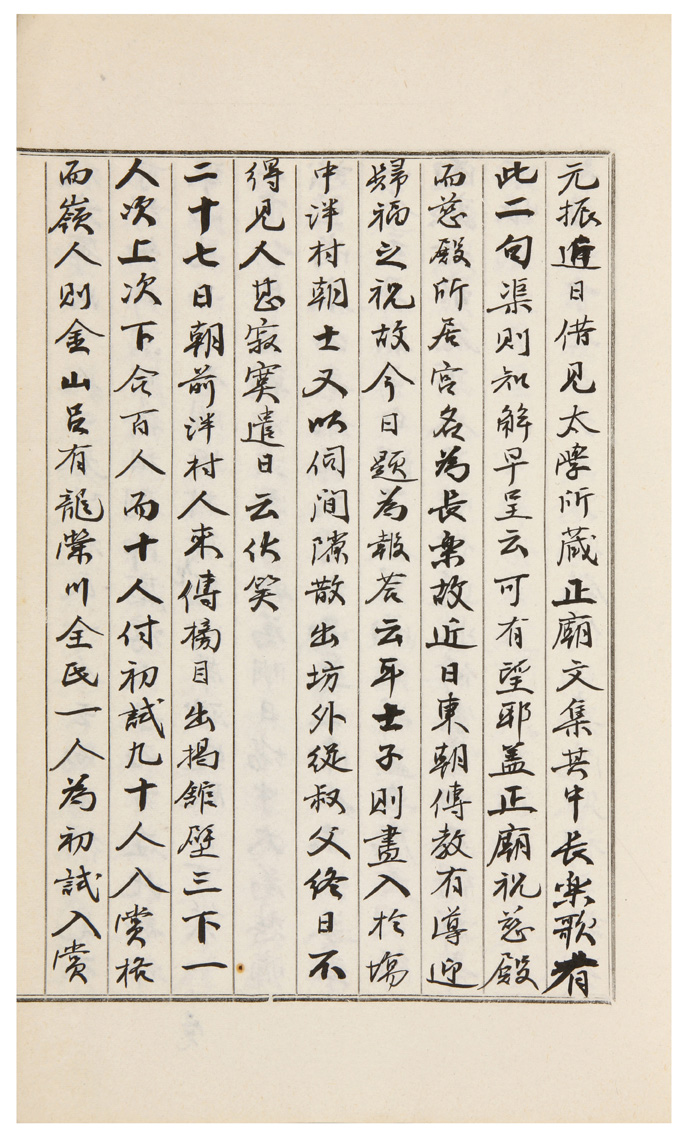 元振進日借見太學所蔵正廟文集其中長樂歌有
此二句渠則知解早呈云可有望耶盖正廟祝慈殿
而慈殿所居宮名為長樂故近日東朝傳教有導迎
歸福之祝故今日題為報答云耳士子則盡入於塲
中泮村朝士又以伺間隙散出坊外從叔父終日不
得見人甚寂寞遣日云伏笑
二十七日朝前泮村人来傳榜目出揭館壁三下一
人次上次下合百人而十人付初試九十人入賞格
而嶺人則金山呂有龍榮川全民一人為初試入賞